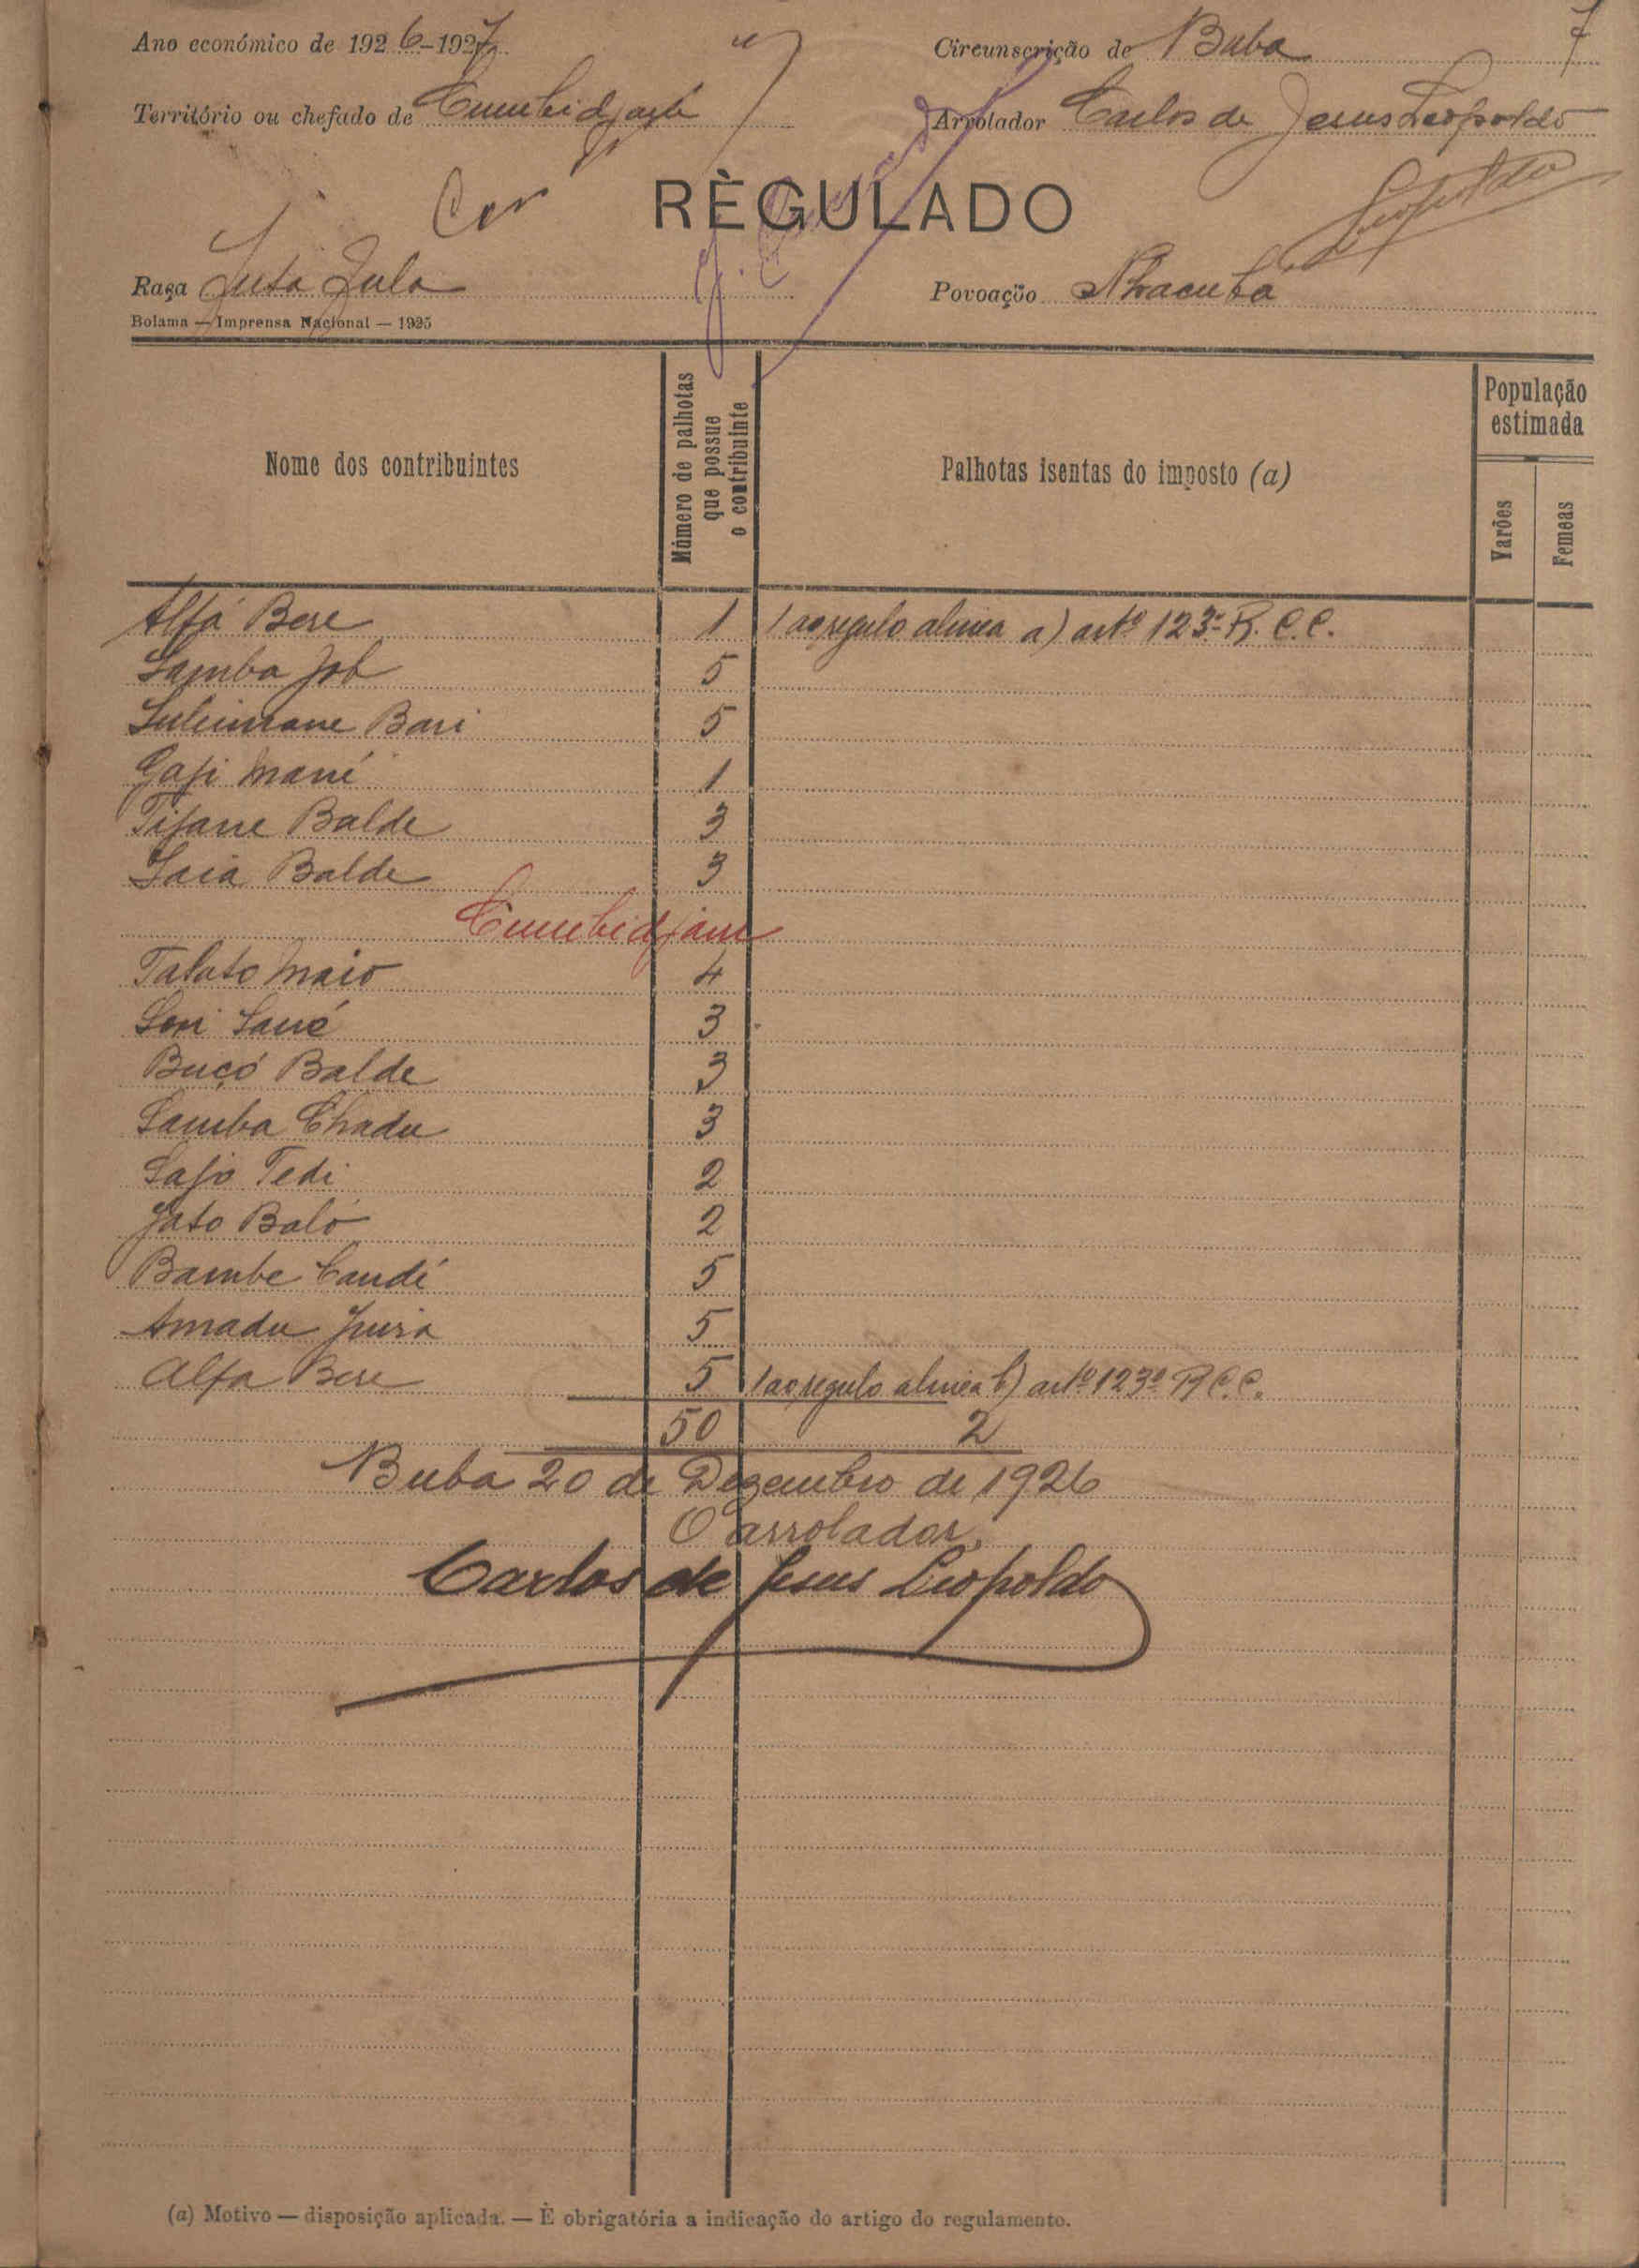 Ano económico de 1926-1927
Circunscrição de Buba
7
Território ou chefado de
Arrolador Carlos de Jesus Leopoldo
RÈGULADO
Leopoldo
Raça Futa Fula
Povoação
Bolama — Imprensa Nacional — 1925
Nome dos contribuintes
Número de palhotas que possue o contribuinte
Palhotas isentas do imposto (a)
População estimada
Varões
Femeas
Alfa Bere 1 1 ao regulo alinea a) artº 123º R. C. C.
Samba Job 5
Suleimane Bari 5
Mané 1
Tijane Balde 3
Saia Balde 3
Talato 4
Sori Sané 3
Buçó Balde 3
Samba Chadu 3
Tedi 2
Jato Baló 2
Bambe Candé 5
Amadu 5
Alfa Bere 5 1 ao regulo alinea b) artº 123º R C. C.
50 2
Buba 20 de Dezembro de 1926
O arrolador,
Carlos de Jesus Leopoldo
(a) Motivo — disposição aplicada. — È obrigatória a indicação do artigo do regulamento.